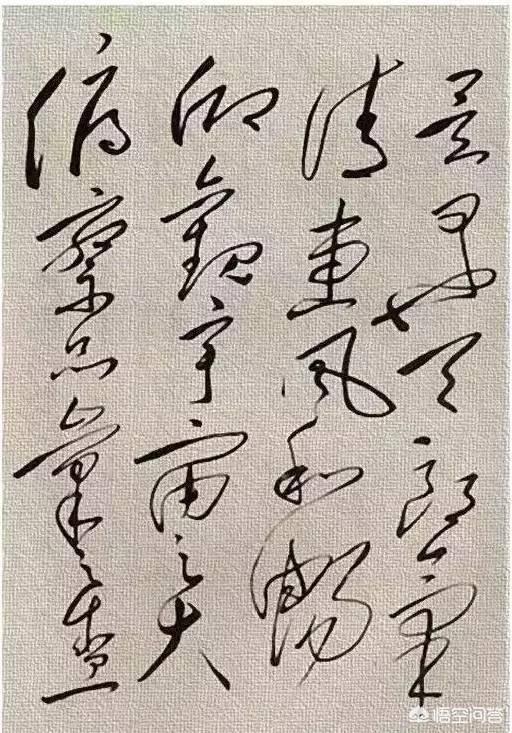 是日也天朗氣
清惠風和暢
仰觀宇宙之大
俯察品之盛
悟空问答